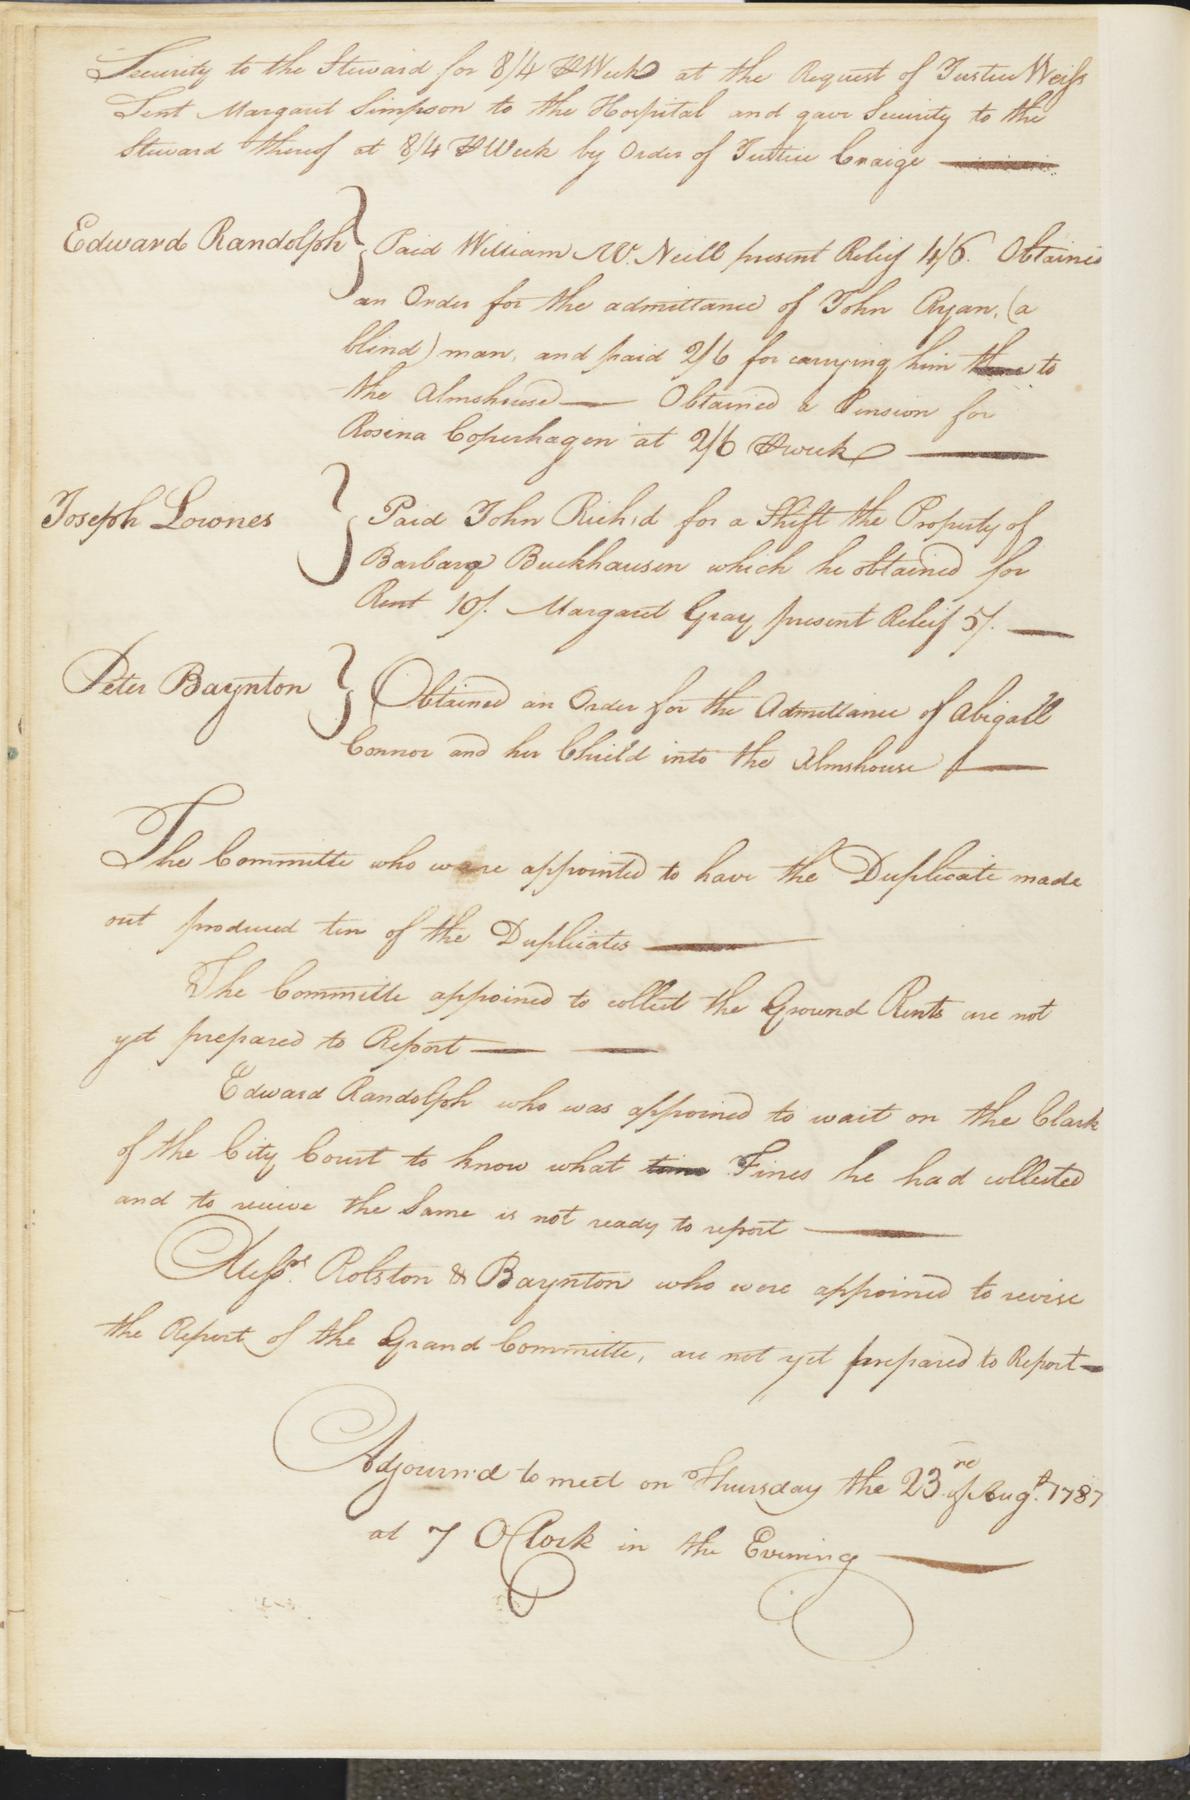 Security to the Steward for 8/4 ⅌ Week at the Request of Justice Weiss
Sent Margaret Simpson to the Hospital and gave Security to the
Steward thereof at 8/4 ⅌ Week by Order of Justice Craige
Edward Randolph } Paid William Mc. Neill present Releif 4/6. Obtained
an Order for the admittance of John Ryan, (a
blind) man, and paid 2/6 for carrying him to
the Almshouse — Obtained a Pension for
Rosina Coperhagen at 2/6 ⅌ week —
Joseph Lownes } Paid John Rich'd for a Shift the Property of
Barbara Buckhausen which he obtained for
Rent 10/. Margaret Gray present Releif 5/. —
Peter Baynton } Obtained an Order for the Admittance of Abigall
Connor and her Chield into the Almshouse —
The Committe who were appointed to have the Duplicate made
out produced ten of the Duplicates —
The Committe appoined to collect the Ground Rents are not
yet prepared to Report — —
Edward Randolph who was appoined to wait on the Clark
of the City Court to know what Fines he had collected
and to recieve the Same is not ready to report —
Messrs. Rolston & Baynton who were appoined to revise
the Report of the Grand Committe, are not yet prepared to Report —
Adjourn'd to meet on Thursday the 23rd of Augt. 1787
at 7 OClock in the Evening —